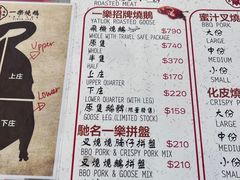 一樂燒鵝
Upper
上庄
Lower
下庄
ROASTED MEAT
一樂招牌燒鵝
YATLOK ROAST GOOSE
飛機燒鵝 $790
WHOLE WITH TRAVEL SAFE PACKAGE
原隻 $740
WHOLE
半隻 $380
HALF
上庄 $170
UPPER QUARTER
下庄 $220
LOWER QUARTER (WITH LEG)
原隻鵝髀 $159
GOOSE LEG (LIMITED STOCK)
馳名一樂拼盤
叉燒燒腩仔拼盤 $210
BBQ PORK & CRISPY PORK MIX
叉燒燒鵝拼盤 $210
BBQ PORK & GOOSE MIX
蜜汁叉燒
BBQ PORK
大份
LARGE
中份
MEDIUM
小份
SMALL
化皮燒
CRISPY
大份
LARGE
中份
MEDIUM
小份
SMALL